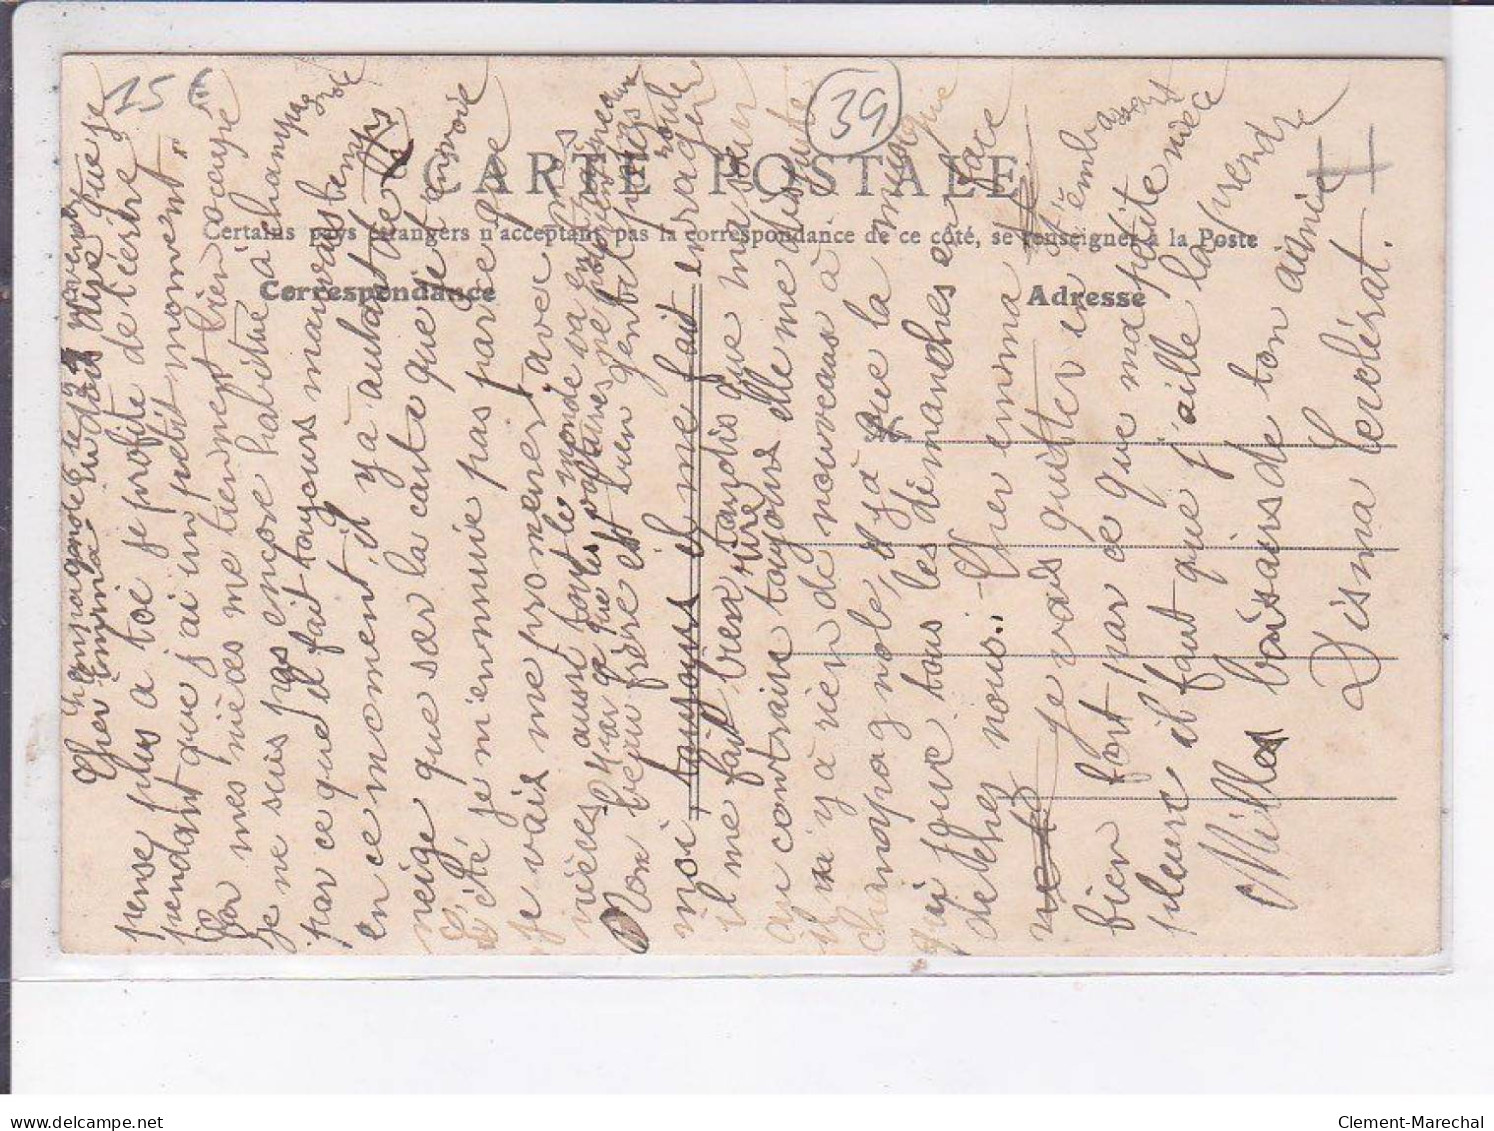 15
39
CARTE POSTALE
Certains pays étrangers n'acceptant pas la correspondance de ce côté, se renseigner à la Poste
Correspondance
Adresse
M
Champagnole le
Cher emma
pense plus a toi je profite de t'écrire
pendant que j'ai un petit moment.
Car mes nièces me tiennent bien occupé
je ne suis pas encore habitué à champagnole
par ce que il fait toujours mauvais temps
en ce moment il y a autant de
neige que sur la carte que je t'envoie
L'été je m'ennuie pas parce que
je vais me promener avec mes
nièces aussi tout le monde va en
Mon beau frère est bien gentil
moi toujours il me fait enrager
il me fait bien rire tandis que ma sœur
au contraire toujours elle me dispute
il n'i y à rien de nouveaus à
champagnole, il y à que la musique
qui joue tous les dimanches en face
de chez nous. Cher emma
je vais quitter en t'embrassent
bien fort par ce que ma petite nièce
pleure il faut que j'aille la prendre
Milles baisers de ton amie
Disma Lerclérat.
Clement-Marechal
delcampe.net